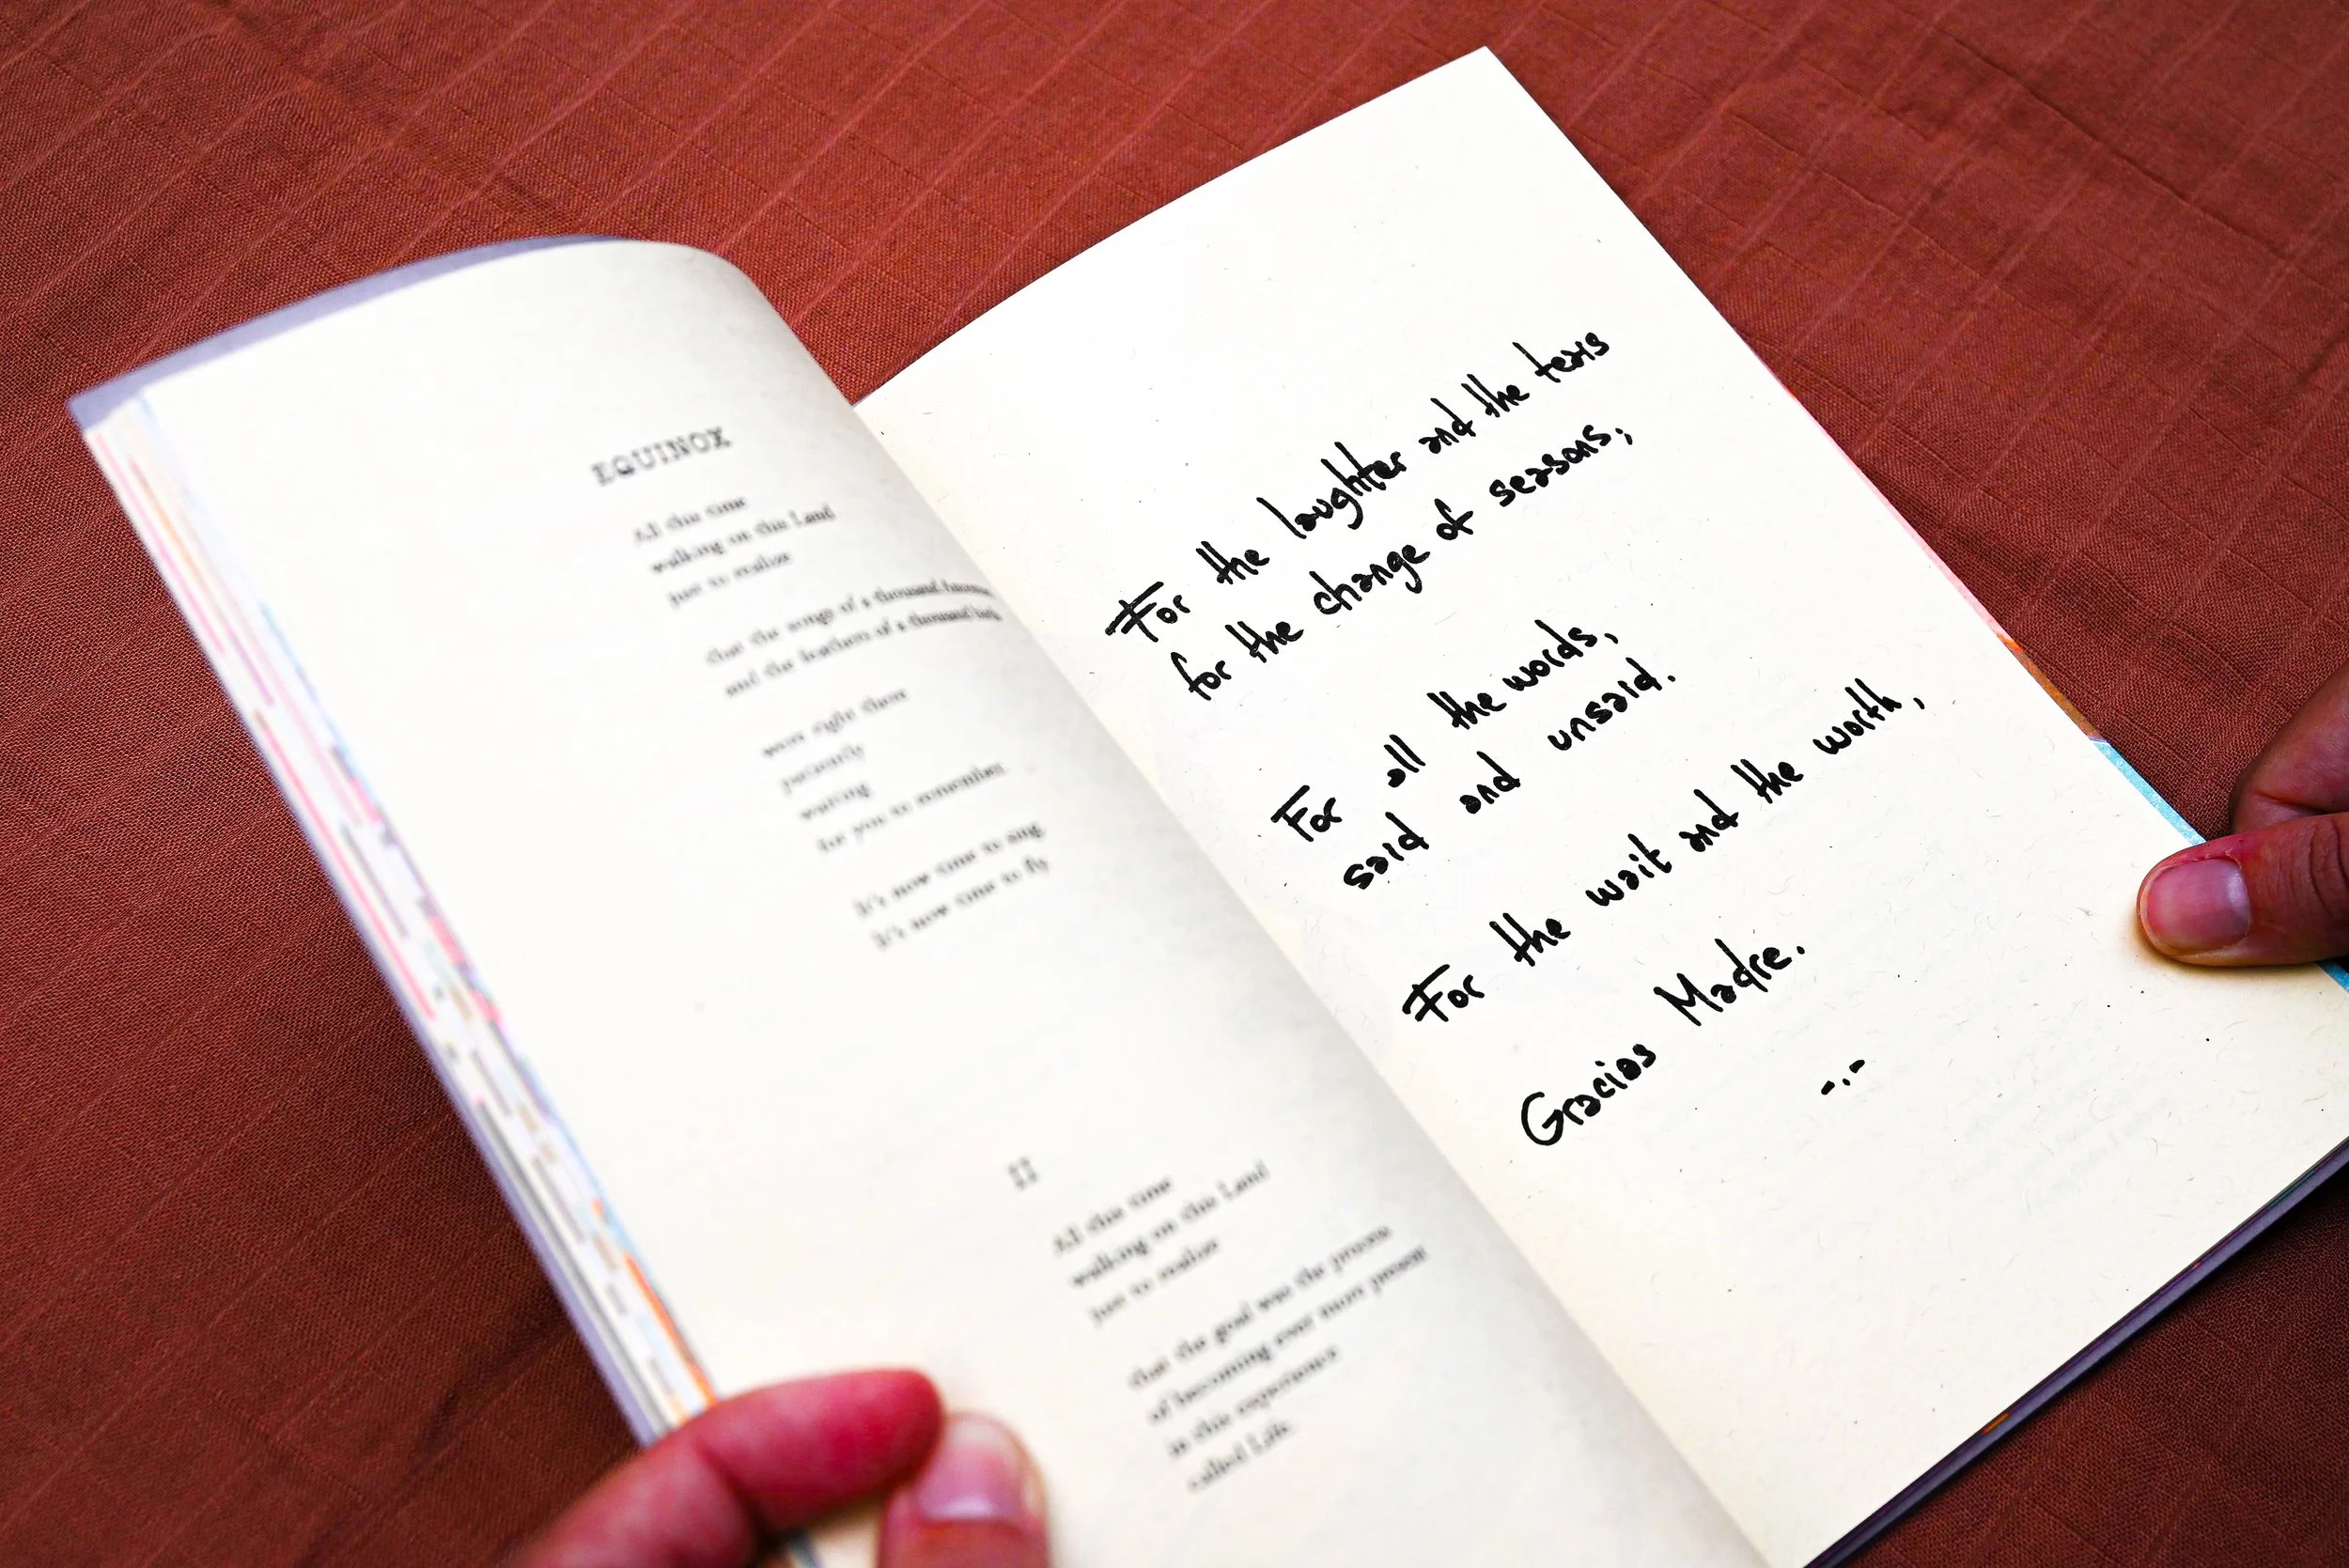 EQUINOX
All this time
walking on this Land
just to realize
that the songs of a thousand
and the feathers of a thousand
were right there
patiently
waiting
for you to remember
It's now time to sing
It's now time to fly
II
All this time
walking on this Land
just to realize
that the goal was the process
of becoming ever more present
in this experience
called Life
For the laughter and the tears
for the change of seasons;
For all the words,
said and unsaid.
For the wait and the worth,
Gracias Madre.
-.-